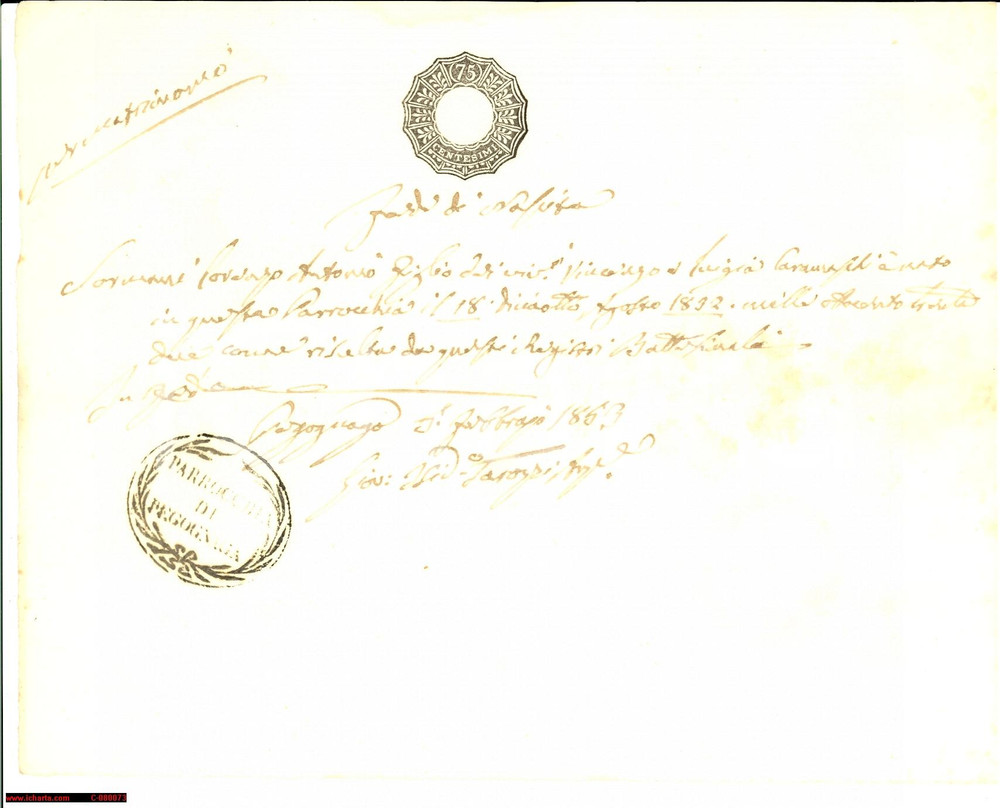 per matrimonio
75
CENTESIMI
Fede di Nascita
Lorenzo Antonio Figlio Vincenzo e Luigia è nato
in questa Parrocchia il 18 diciotto Agosto 1832 mille ottocento trenta
due come risulta da questi Registri Battesimali
In Fede
Pegognaga Febbrajo 1863
PARROCCHIA
DI
PEGOGNAGA
www.icharta.com C-000073